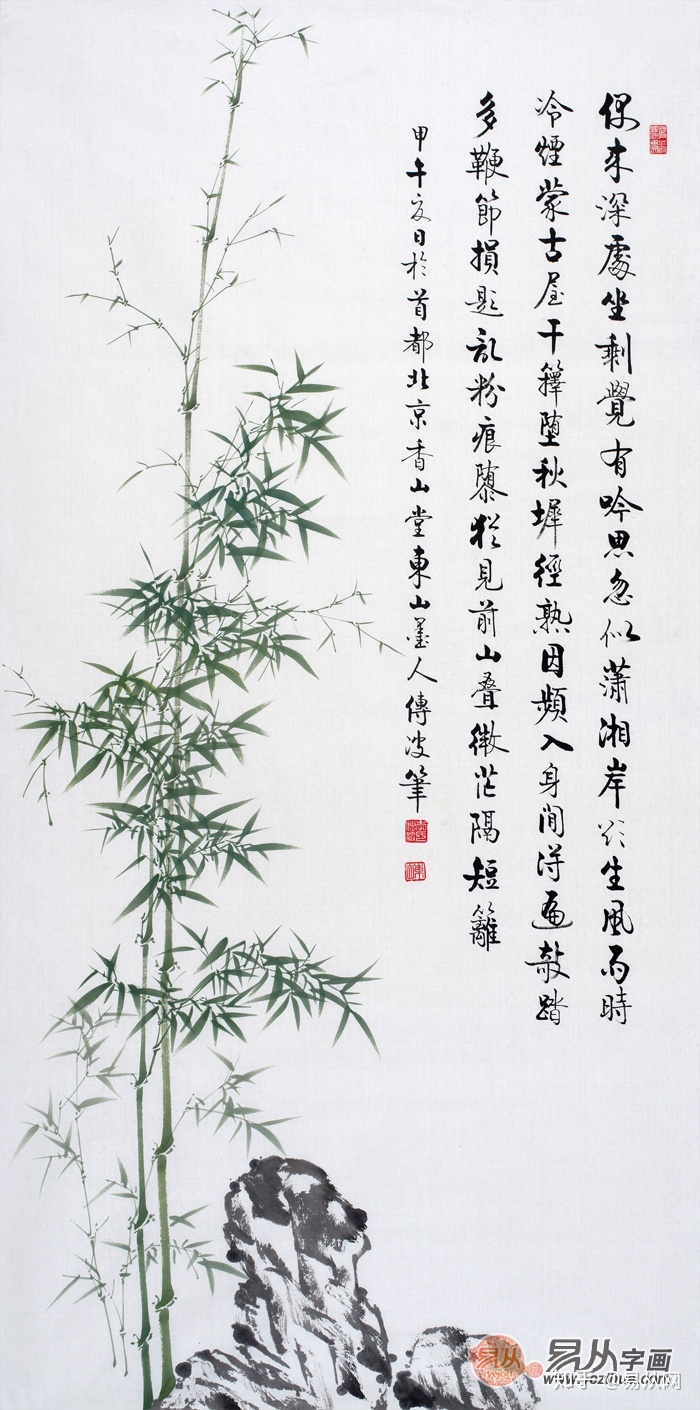 偶来深處坐剩覺有吟思忽似瀟湘岸欲生風雨時
冷煙蒙古屋干籜堕秋墀徑熟因頻入身閒得遍敧踏
多鞭節損題乱粉痕隳猶見前山叠微茫隔短籬
甲午夏日於首都北京香山堂東山墨人傳波筆
易从
易从字画
知乎 @易从网
www.yczihua.com